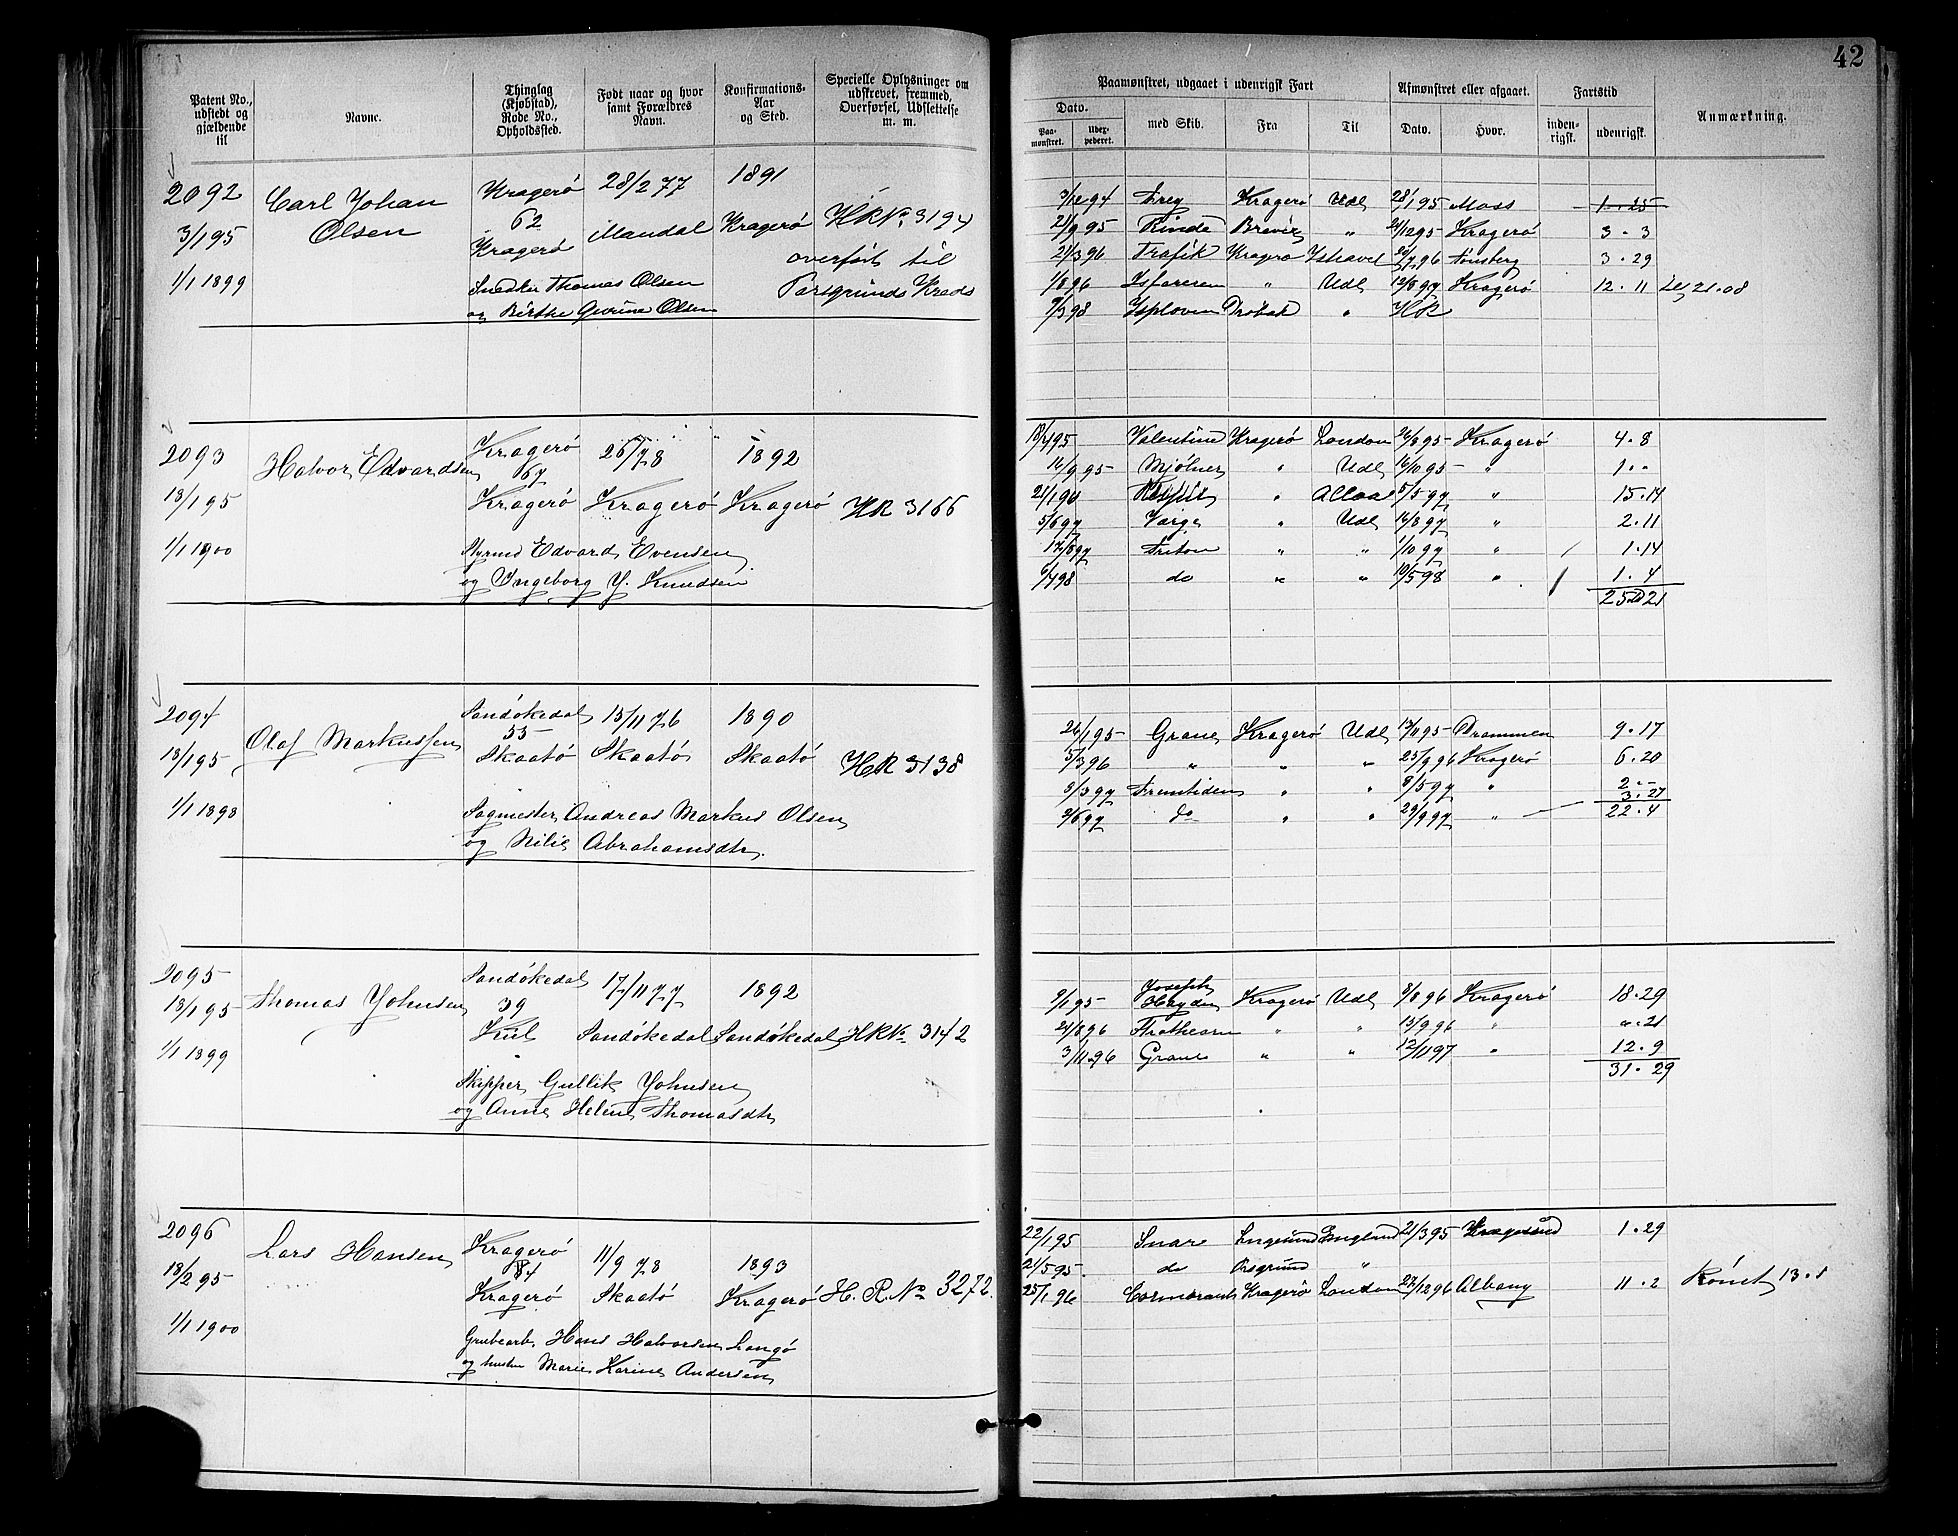 42
Patent No., udstedt og gjældende til
Navne.
Thinglag (Kjøbstad), Rode No., Opholdssted.
Født naar og hvor samt Forældres Navn.
Konfirmations- Aar og Sted.
Specielle Oplysninger om udskrevet, fremmed, Overførsel, Udslettelse m. m.
Paamønstret, udgaaet i udenrigsk Fart
Afmønstret eller afgaaet.
Fartstid
Anmærkning.
Dato.
Paa- mønstret.
med Skib.
Fra
Til
Dato.
Hvor.
inden- rigsk.
udenrigsk.
2092
Carl Johan Olsen
Kragerö 28/2 77 1891
62
Kragerö Mandal Kragerö HK No. 3194
3/1 95
overfört til
1/1 1899
Snedker Thomas Olsen
Porsgrunds Kreds
og Birthe Gurine Olsen
3/12 94 Frey Kragerö Udl 28/1 95 Moss 1.25
21/9 95 Rinde Brevig " 21/12 95 Kragerö 3.3
21/3 96 Trafik Kragerö Ishavet 20/7 96 Tönsberg 3.29
1/8 96 Isfareren " Udl 12/8 97 Kragerö 12.11 21.08
7/3 98 Isploven Dröbak " HK
2093
Halvor Edvardsen
Kragerö 26/7 78 1892
67
13/1 95
Kragerö Kragerö Kragerö HR 3166
1/1 1900
Styrmd Edvard Evensen
og Ingeborg J. Knudsen
13/4 95 Valentine Kragerö London 24/8 95 Kragerö 4.8
16/9 95 Mjölner " Udl 16/10 95 " 1."
21/1 96 " Alloa 5/5 97 " 15.14
5/6 97 Varig " Udl 16/8 97 " 2.11
17/8 97 Triton " " 1/10 97 " 1.14
6/4 98 do " " 10/5 98 " 1.4
25.21
2094
Olaf Markussen
Sandökedal 15/11 76 1890
55
13/1 95
Skaatö Skaatö Skaatö HR 3138
1/1 1898
Sagmester Andreas Markus Olsen
og Nilie Abrahamsdtr.
26/1 95 Grane Kragerö Udl 12/11 95 Drammen 9.17
5/3 96 " " " 25/9 96 Kragerö 6.20
8/3 97 Fremtiden " " 8/5 97 " 2.-
3.27
2/6 97 do " " 29/9 97 " 22.4
2095
Thomas Johnsen
Sandökedal 17/11 77 1892
39
13/1 95
Kiil Sandökedal Sandökedal HK No. 3142
1/1 1899
Skipper Gullik Johnsen
og Anne Helene Thomasdtr
9/1 95 Joseph Haydn Kragerö Udl 8/8 96 Kragerö 18.29
21/8 96 Strathearn " " 15/9 96 " ".21
3/11 96 Grane " " 12/11 97 " 12.9
31.29
2096
Lars Hansen
Kragerö 11/9 78 1893
84
18/2 95
Kragerö Skaatö Kragerö H. R. No 3272.
1/1 1900
Grubearb. Hans Halvorsen Langö
og hustru Marie Karine Andersen
22/1 95 Snare Langesund England 21/3 95 1.29
21/5 95. do Porsgrund "
25/1 96 Cormorant Kragerö London 27/12 96 Albany 11.2 Römt 13.1